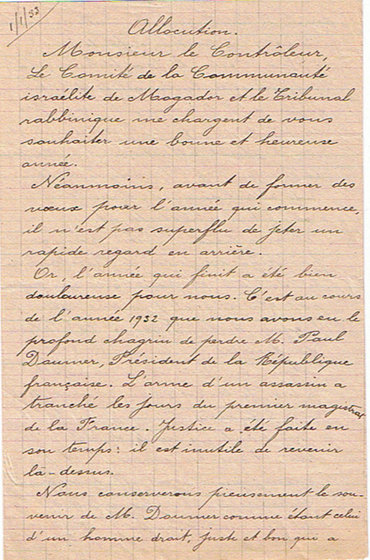 1/1/33
Allocution.
Monsieur le Contrôleur,
Le Comité de la Communauté
israélite de Mogador et le Tribunal
rabbinique me chargent de vous
souhaiter une bonne et heureuse
année.
Néanmoins, avant de former des
vœux pour l'année qui commence,
il n'est pas superflu de jeter un
rapide regard en arrière.
Or, l'année qui finit a été bien
douloureuse pour nous. C'est au cours
de l'année 1932 que nous avons eu le
profond chagrin de perdre M. Paul
Doumer, Président de la République
française. L'arme d'un assassin a
tranché les jours du premier magistrat
de la France. Justice a été faite en
son temps: il est inutile de revenir
là-dessus.
Nous conserverons pieusement le sou-
venir de M. Doumer comme étant celui
d'un homme droit, juste et bon, qui a